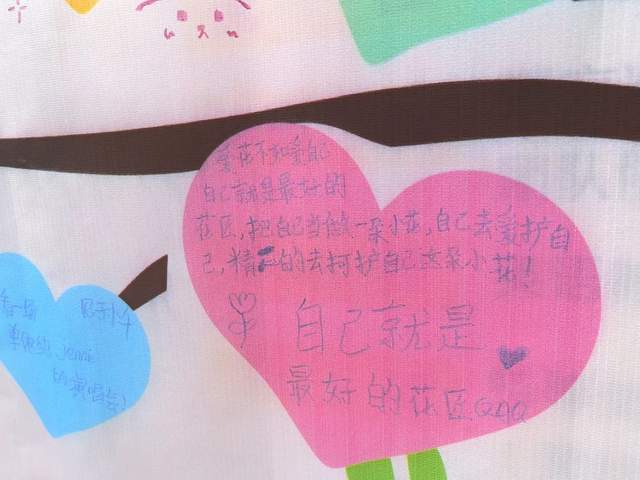 爱花不如爱自己
自己就是最好的
花匠,把自己当做一朵小花,自己去爱护自
己,精心的去呵护自己这朵小花!
自己就是
最好的花匠QAQ
看一场
单依纯 Jenni
的演唱会!